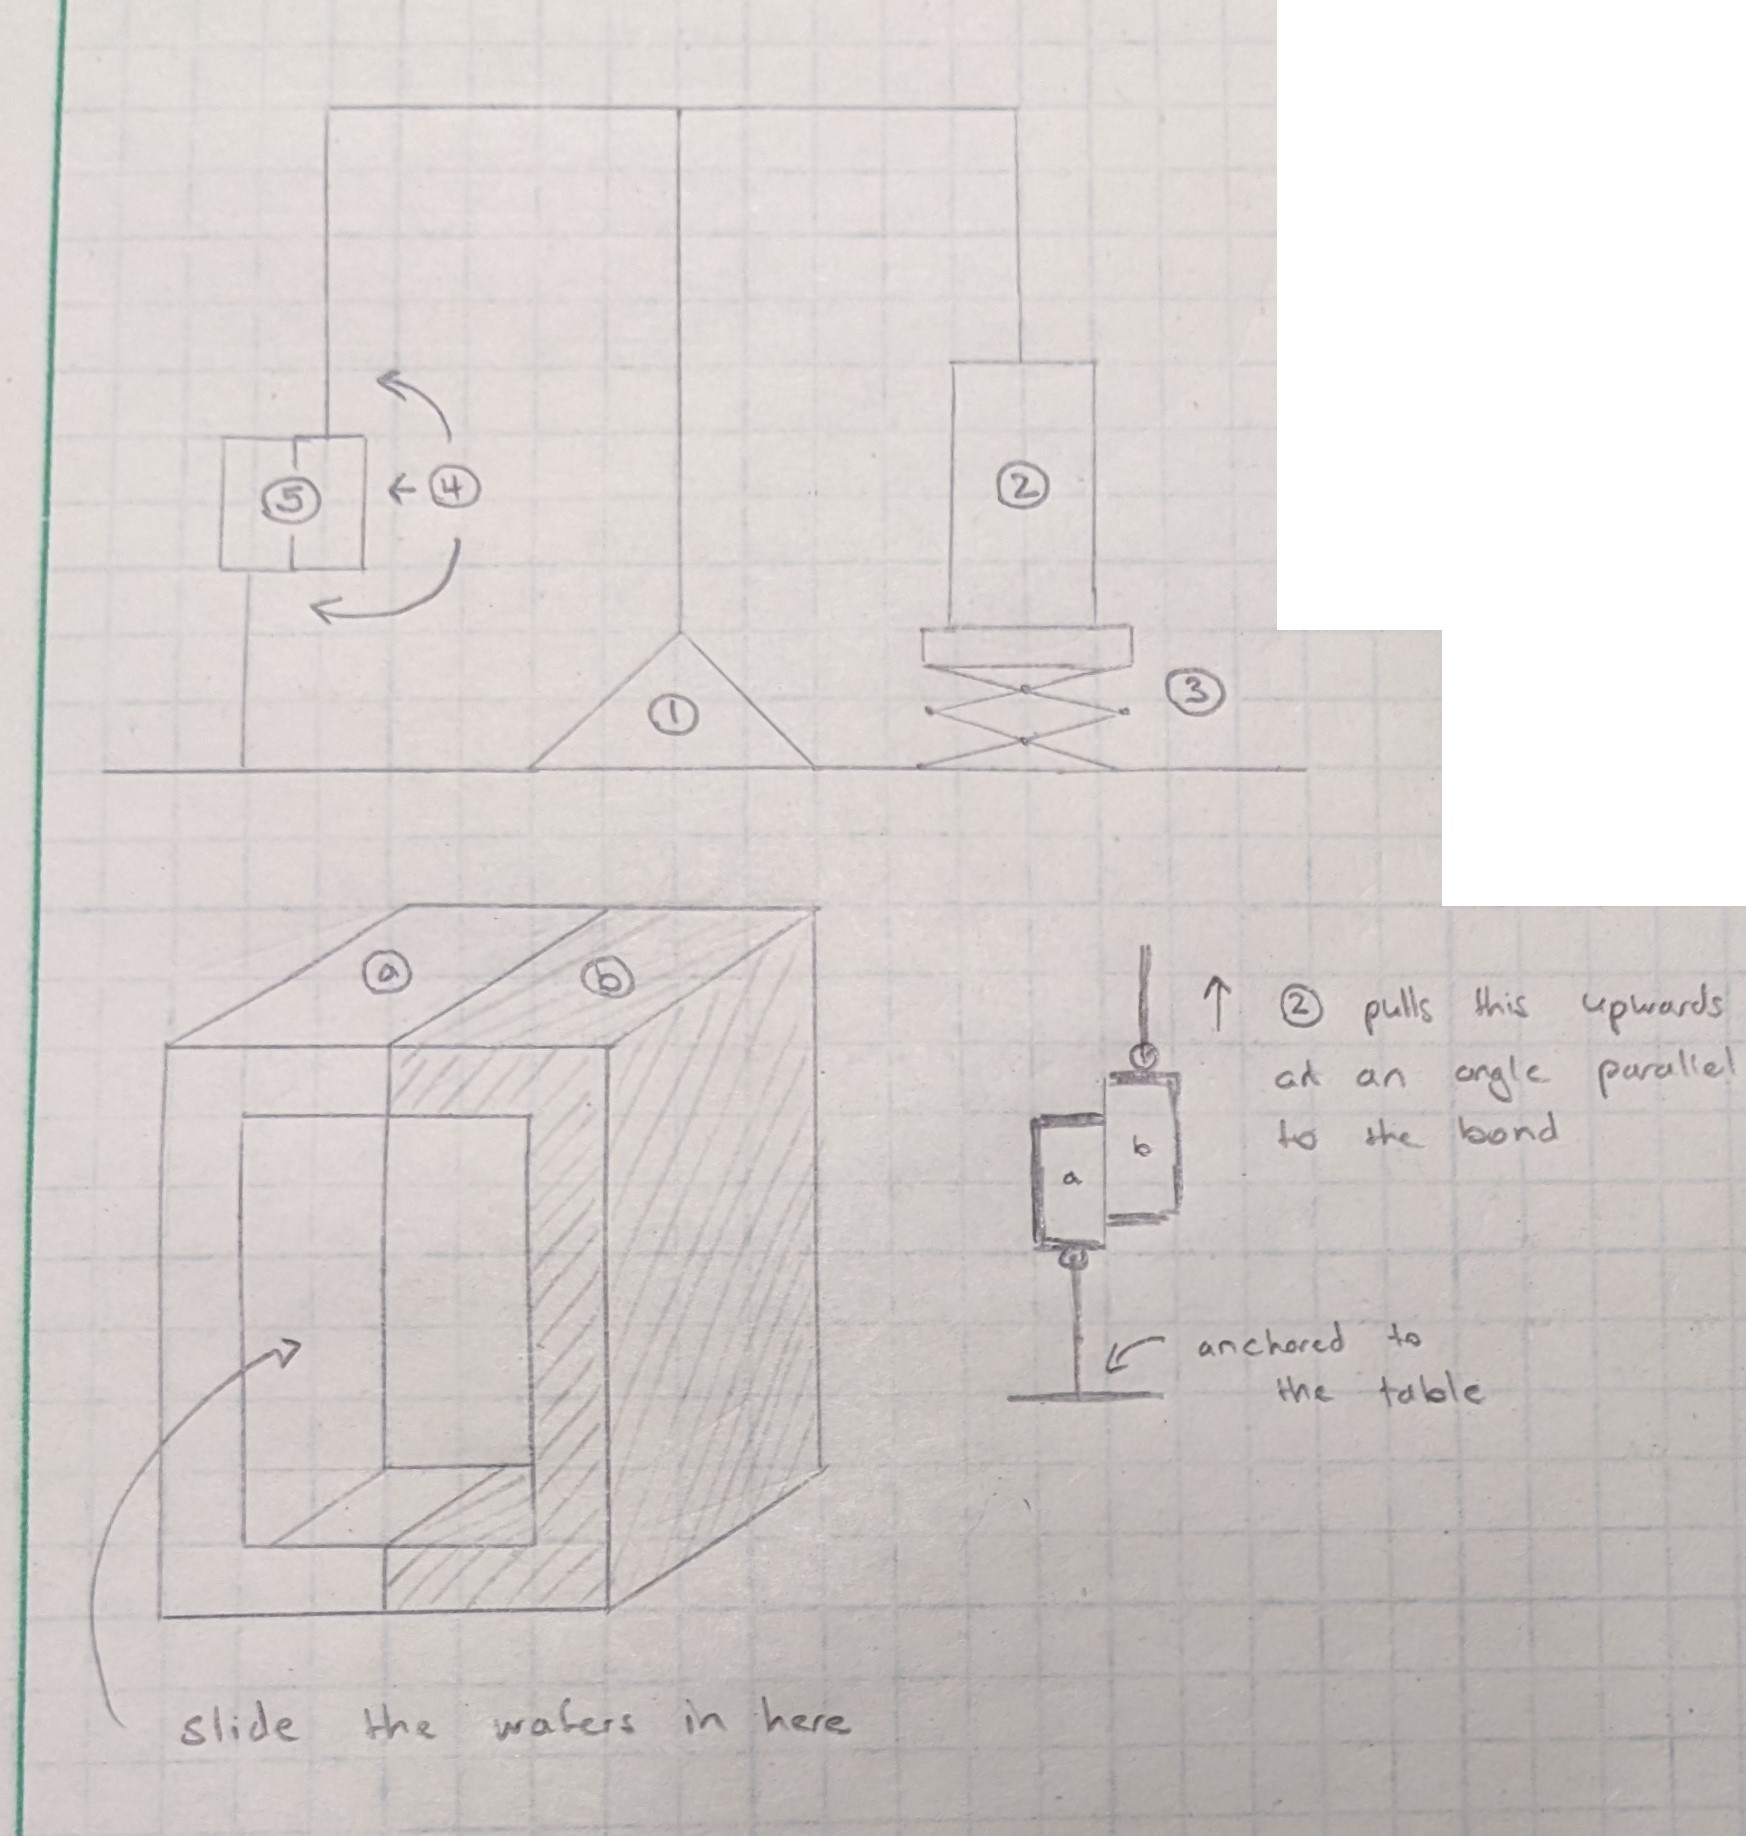 ④
⑤
②
③
①
ⓐ
ⓑ
② pulls this upwards
at an angle parallel
to the bond
b
a
anchored to
the table
slide the wafers in here